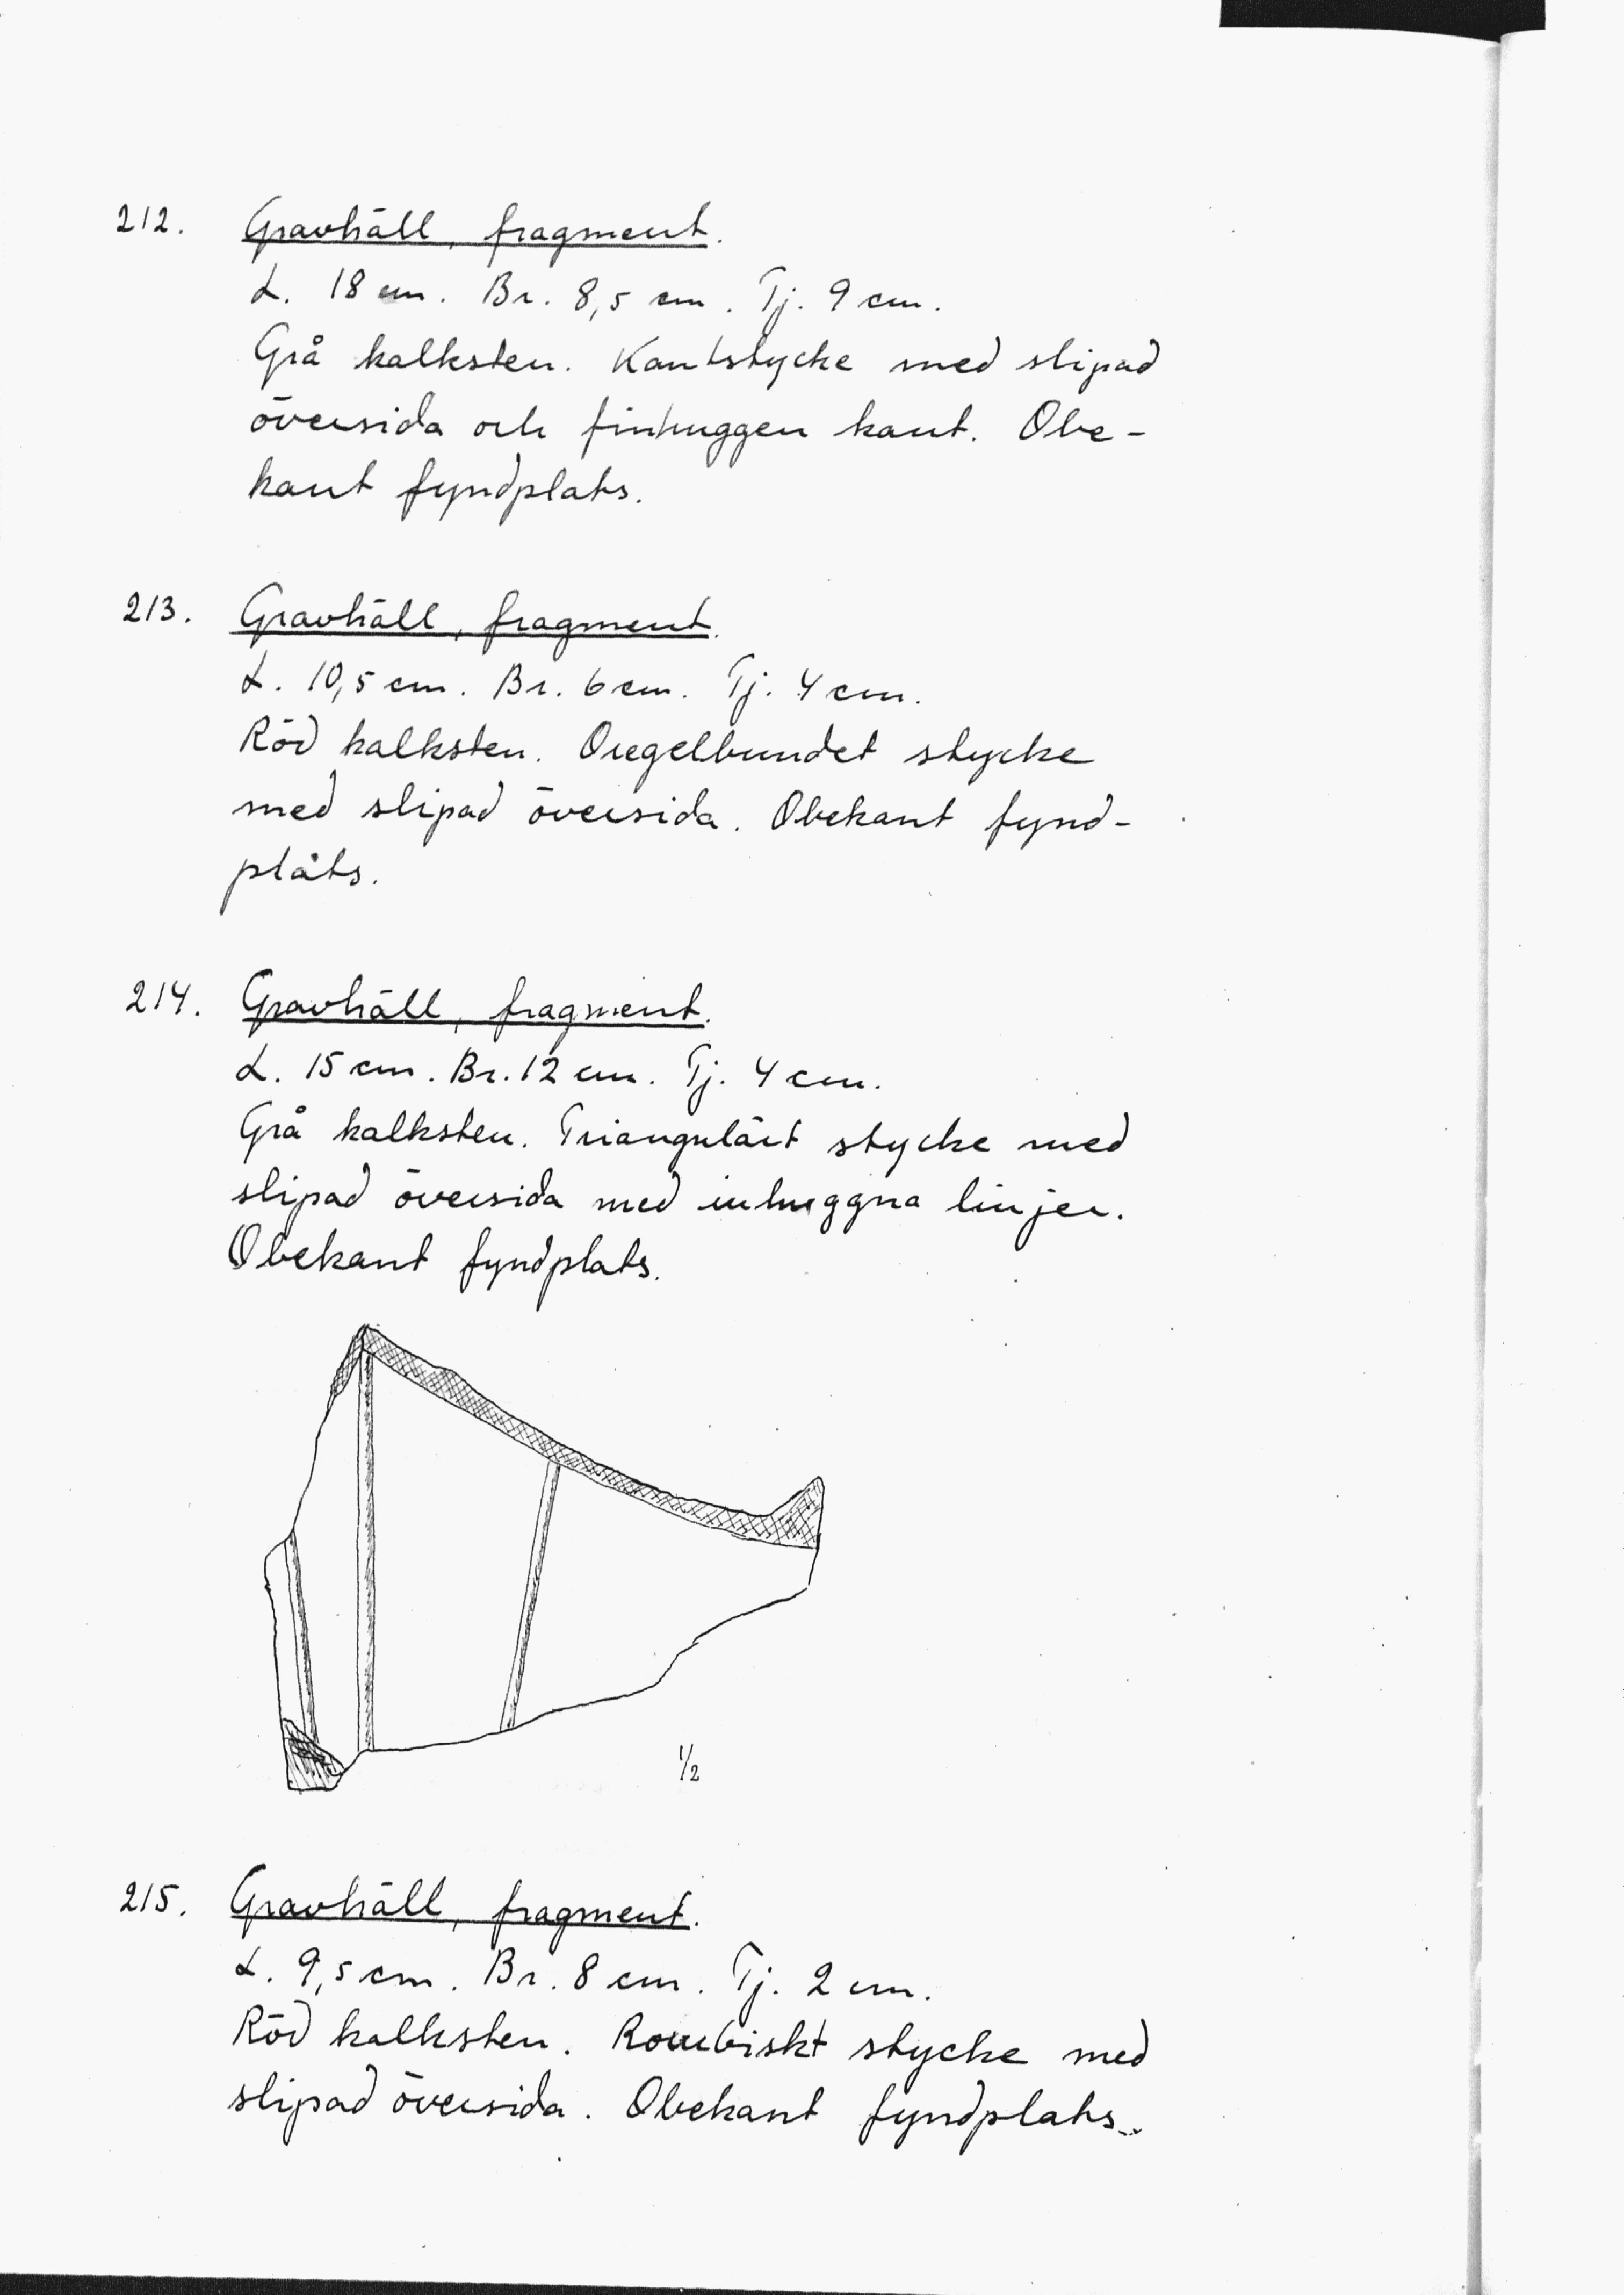 212. Gravhäll, fragment.
L. 18 cm. Br. 8,5 cm. Tj. 9 cm.
Grå kalksten. Kantstycke med slipad
översida och finhuggen kant. Obe-
kant fyndplats.
213. Gravhäll, fragment.
L. 10,5 cm. Br. 6 cm. Tj. 4 cm.
Röd kalksten. Oregelbundet stycke
med slipad översida. Obekant fynd-
plats.
214. Gravhäll, fragment.
L. 15 cm. Br. 12 cm. Tj. 4 cm.
Grå kalksten. Triangulärt stycke med
slipad översida med inhuggna linjer.
Obekant fyndplats.
1/2
215. Gravhäll, fragment.
L. 9,5 cm. Br. 8 cm. Tj. 2 cm.
Röd kalksten. Rombiskt stycke med
slipad översida. Obekant fyndplats.